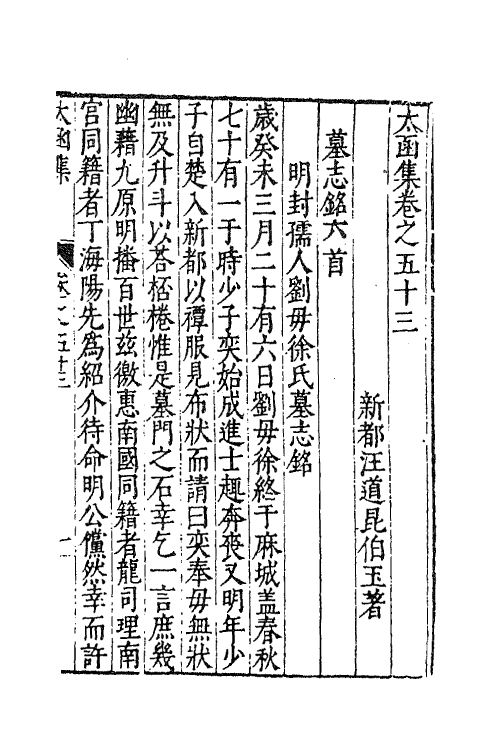 太函集卷之五十三
新都汪道昆伯玉著
墓志銘六首
明封孺人劉毋徐氏墓志銘
歲癸未三月二十有六日劉毋徐終于麻城盖春秋
七十有一于時少子奕始成進士趣奔喪又明年少
子自楚入新都以禫服見布狀而請曰奕奉毋無狀
無及升斗以荅桮棬惟是墓門之石幸乞一言庶幾
幽藉九原明播百世兹徼惠南國同籍者龍司理南
宫同籍者丁海陽先爲紹介待命明公儻然幸而許
太函集
卷之五十三
一